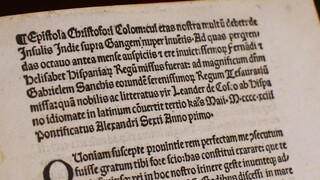 ¶Epistola Christofori Colom: cui etas nostra multũ debet: de
Insulis Indie supra Gangem nuper inuẽtis. Ad quas perqren-
das octauo antea mense auspiciis ⁊ ere inuictissimor Fernãdi ⁊
Helisabet Hispaniar Regũ missus fuerat: ad magnificum dñm
Gabrielem Sanchis eorundẽ serenissimor Regum Tesaurariũ
missa: quã nobilis ac litteratus vir Leander de Cosco ab Hispa
no idiomate in latinum cõuertit tertio kal's Maii. M.cccc.xciii
Pontificatus Alexandri Sexti Anno primo.
QUoniam suscepte prouintie rem perfectam me cõsecutum
fuisse gratum tibi fore scio: has constitui exarare: que te
vniuscuiusque rei in hoc nostro itinere geste inuentęque ad-